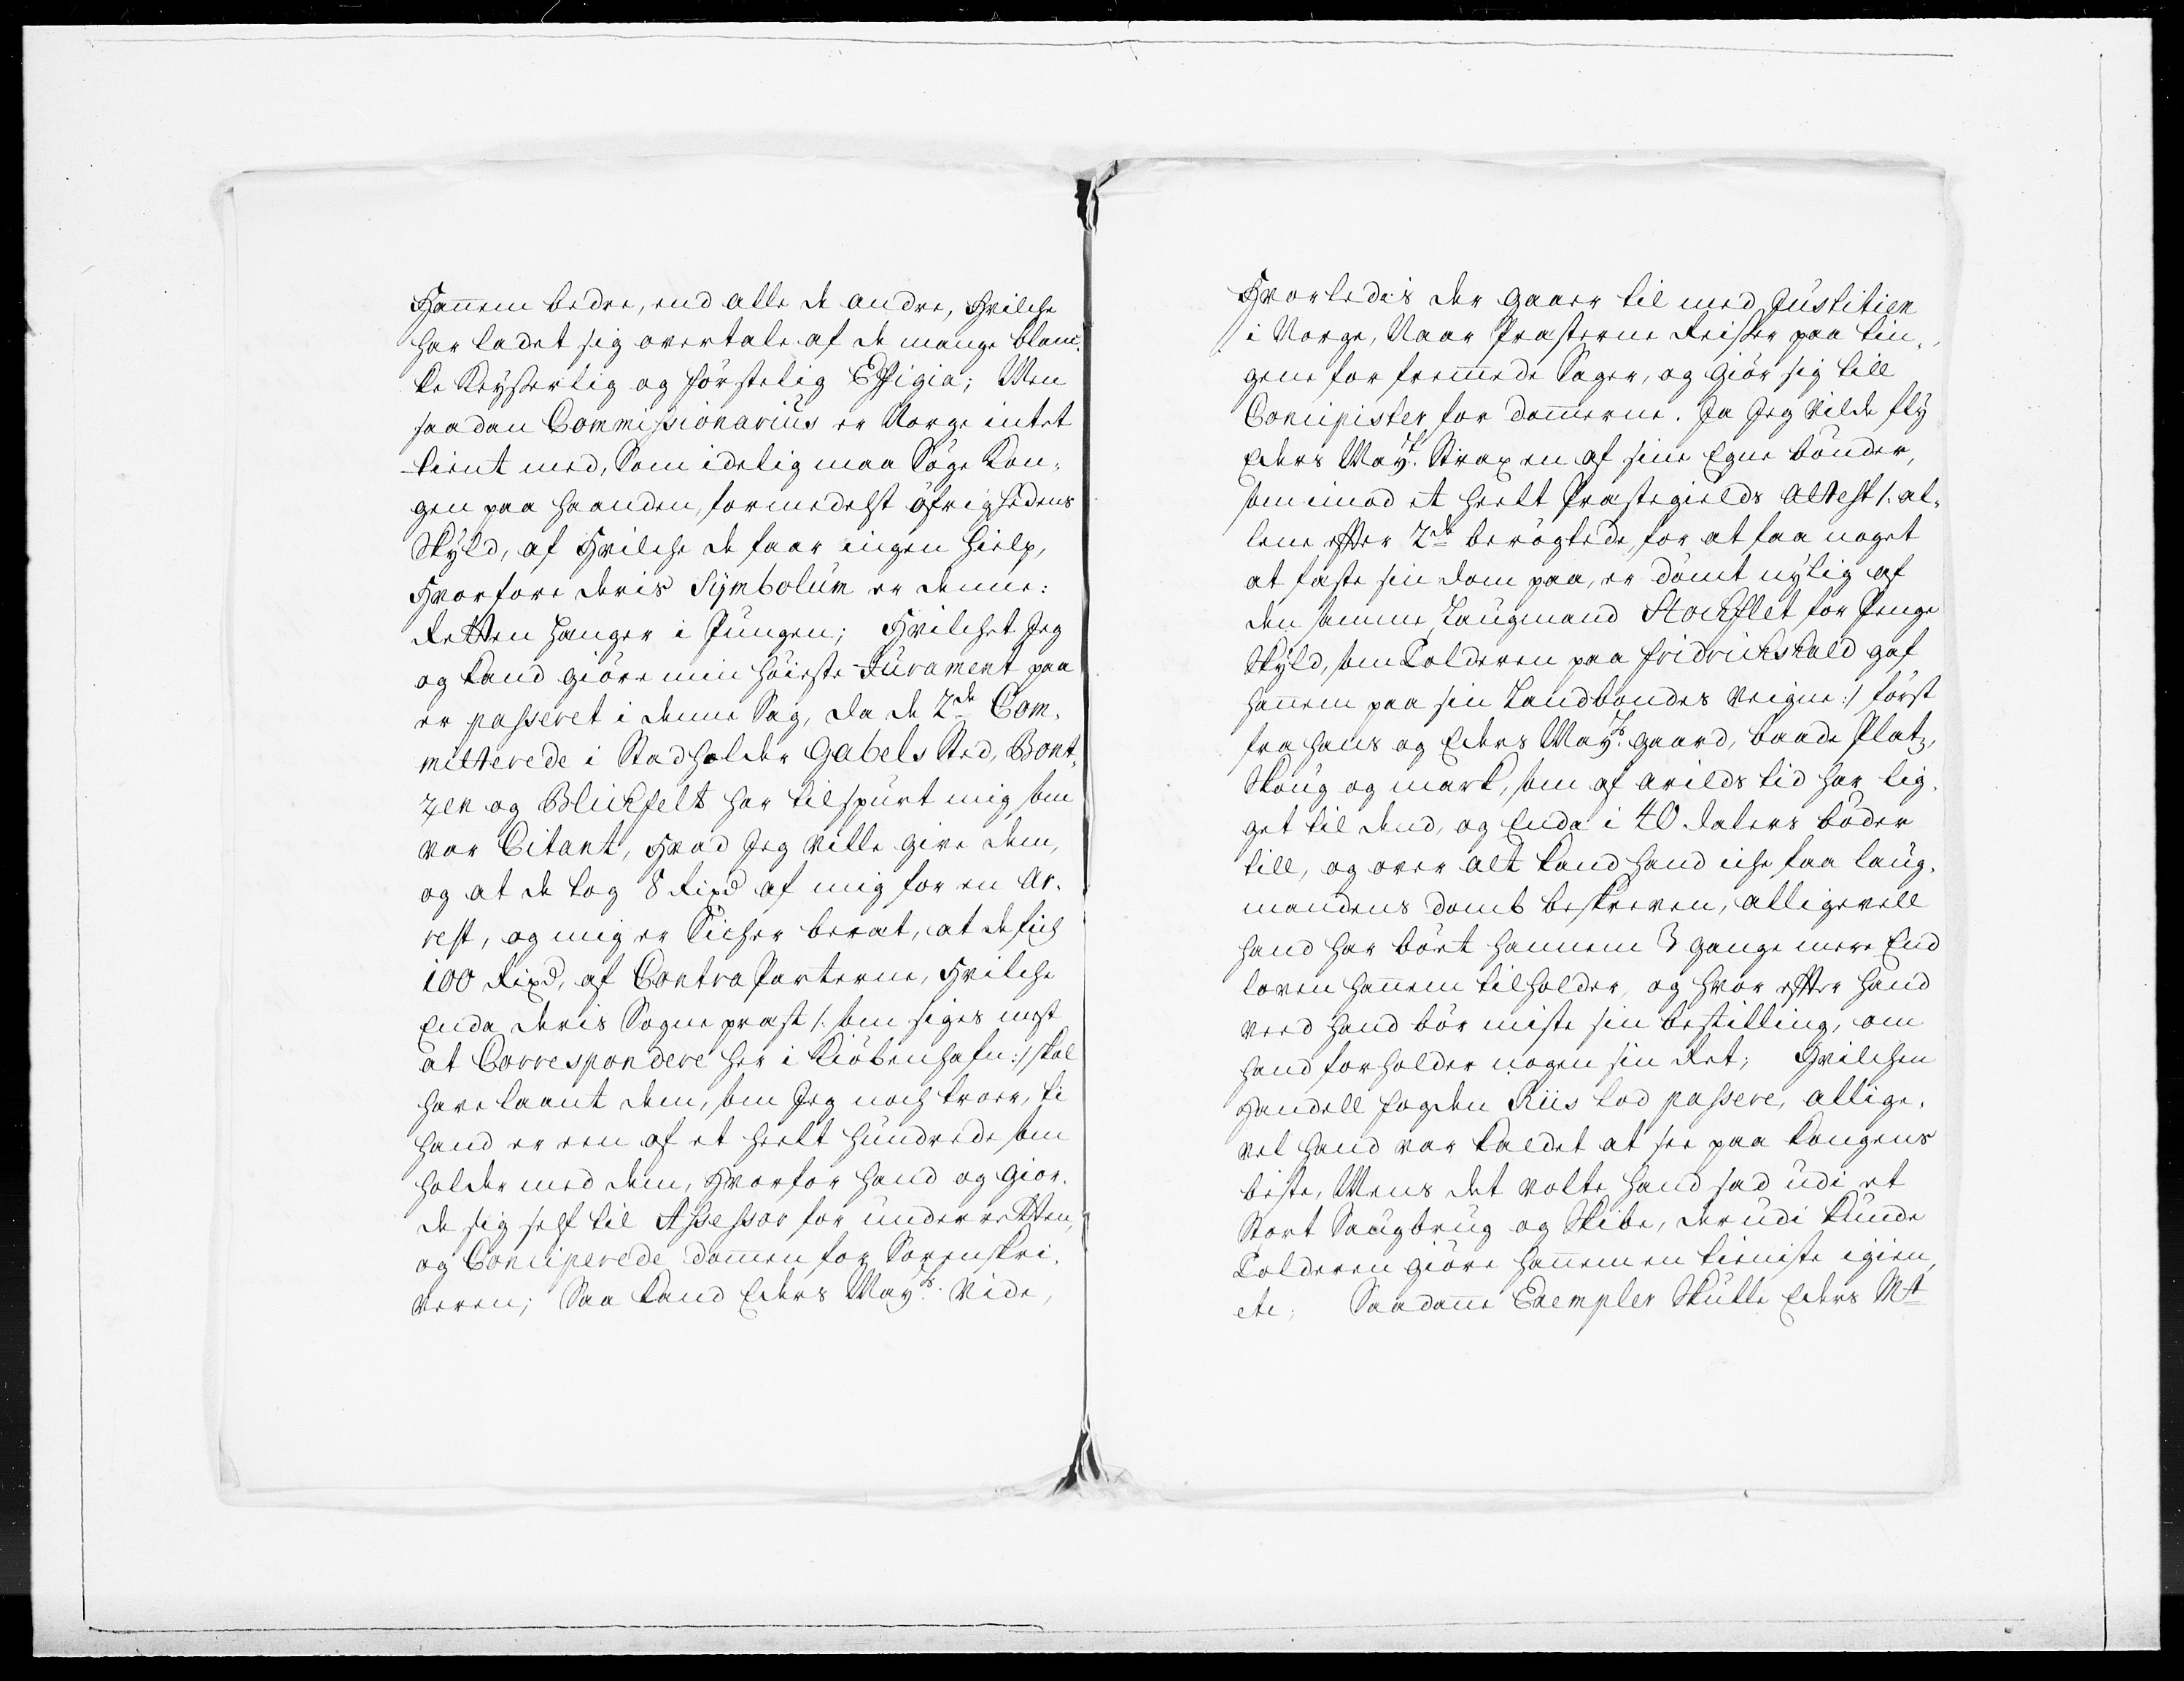 Hannem bedre, end alle de andre, Hvilche
har ladet sig overtale af de mange blanc¬
ke Keyserlig og Förstelig Effigia; Men
saadan Commissionarius er Norge intet
tient med, Som idelig maa Söge Kon¬
gen paa haanden, formedelst öfrighedens
Skyld, af Hvilche de faar ingen hielp,
Hvorfore deris Symbolum er denne:
Retten hanger i Pungen; Hvilchet Jeg
og kand giöre min höieste Jurament paa
er passeret i denne Sag, da de 2de Com¬
mitterede i Stadholder Gabels Sted, Bont¬
zen og Blichfelt har tilspurt mig som
var Citant, Hvad Jeg ville give dem,
og at de tog 8 Rixd af mig for en Ar¬
rest, og mig er Sicher beræt, at de fich
100 Rixd, af Contra Parterne, Hvilche
Enda deris Sogne præst /: som siges mest
at Correspondere her i Kiöbenhafn :/ skal
have laant dem, som Jeg noch troer, ti
hand er een af et heelt hundrede som
holder med dem, Hvorfor hand og gior¬
de sig self til Assessor for underretten,
og Conciperede dommen for Sorenskri¬
veren; Saa kand Eders Mayt. Vide,
Hvorledis der gaaer til med Justitien
i Norge, Naar Præsterne Reiser paa tin¬
gene for fremmede Sager, og giör sig till
Concipister for dommerne. Ja Jeg vilde fly
Eders Mayt. Strax en af sine Egne bönder,
som imod et heelt Præstegields Attest /: al¬
lene efter 2de berögtede, for at faa noget
at fæste sin dom paa, er dömt nylig af
den samme Laugmand Stochflet for Penge
Skyld, som Tolderen paa Fridrichshald gaf
hannem paa sin Landbondes Veigne :/ först
fra hans og Eders Mayt. gaard, baade Platz,
Skoug og mark, som af Arilds tid har lig¬
get til dend, og Enda i 40 dalers böder
till, og over alt kand hand iche faa laug¬
mandens domb beskreven, alligevell
hand har bört hannem 3 gange mere End
loven hannem tilholder, og hvor efter hand
veed hand bör miste sin bestilling, om
hand forholder nogen sin Ret; Hvilchen
Handell fogden Riis lod passere, allige¬
vel hand var kaldet at see paa Kongens
beste, Mens det volte hand sad udi et
Stort Saugbrug og Skibe, der udi kunde
Tolderen giöre hannem en tieniste igien,
etc. Saadanne Exempler Skulle Eders Mt